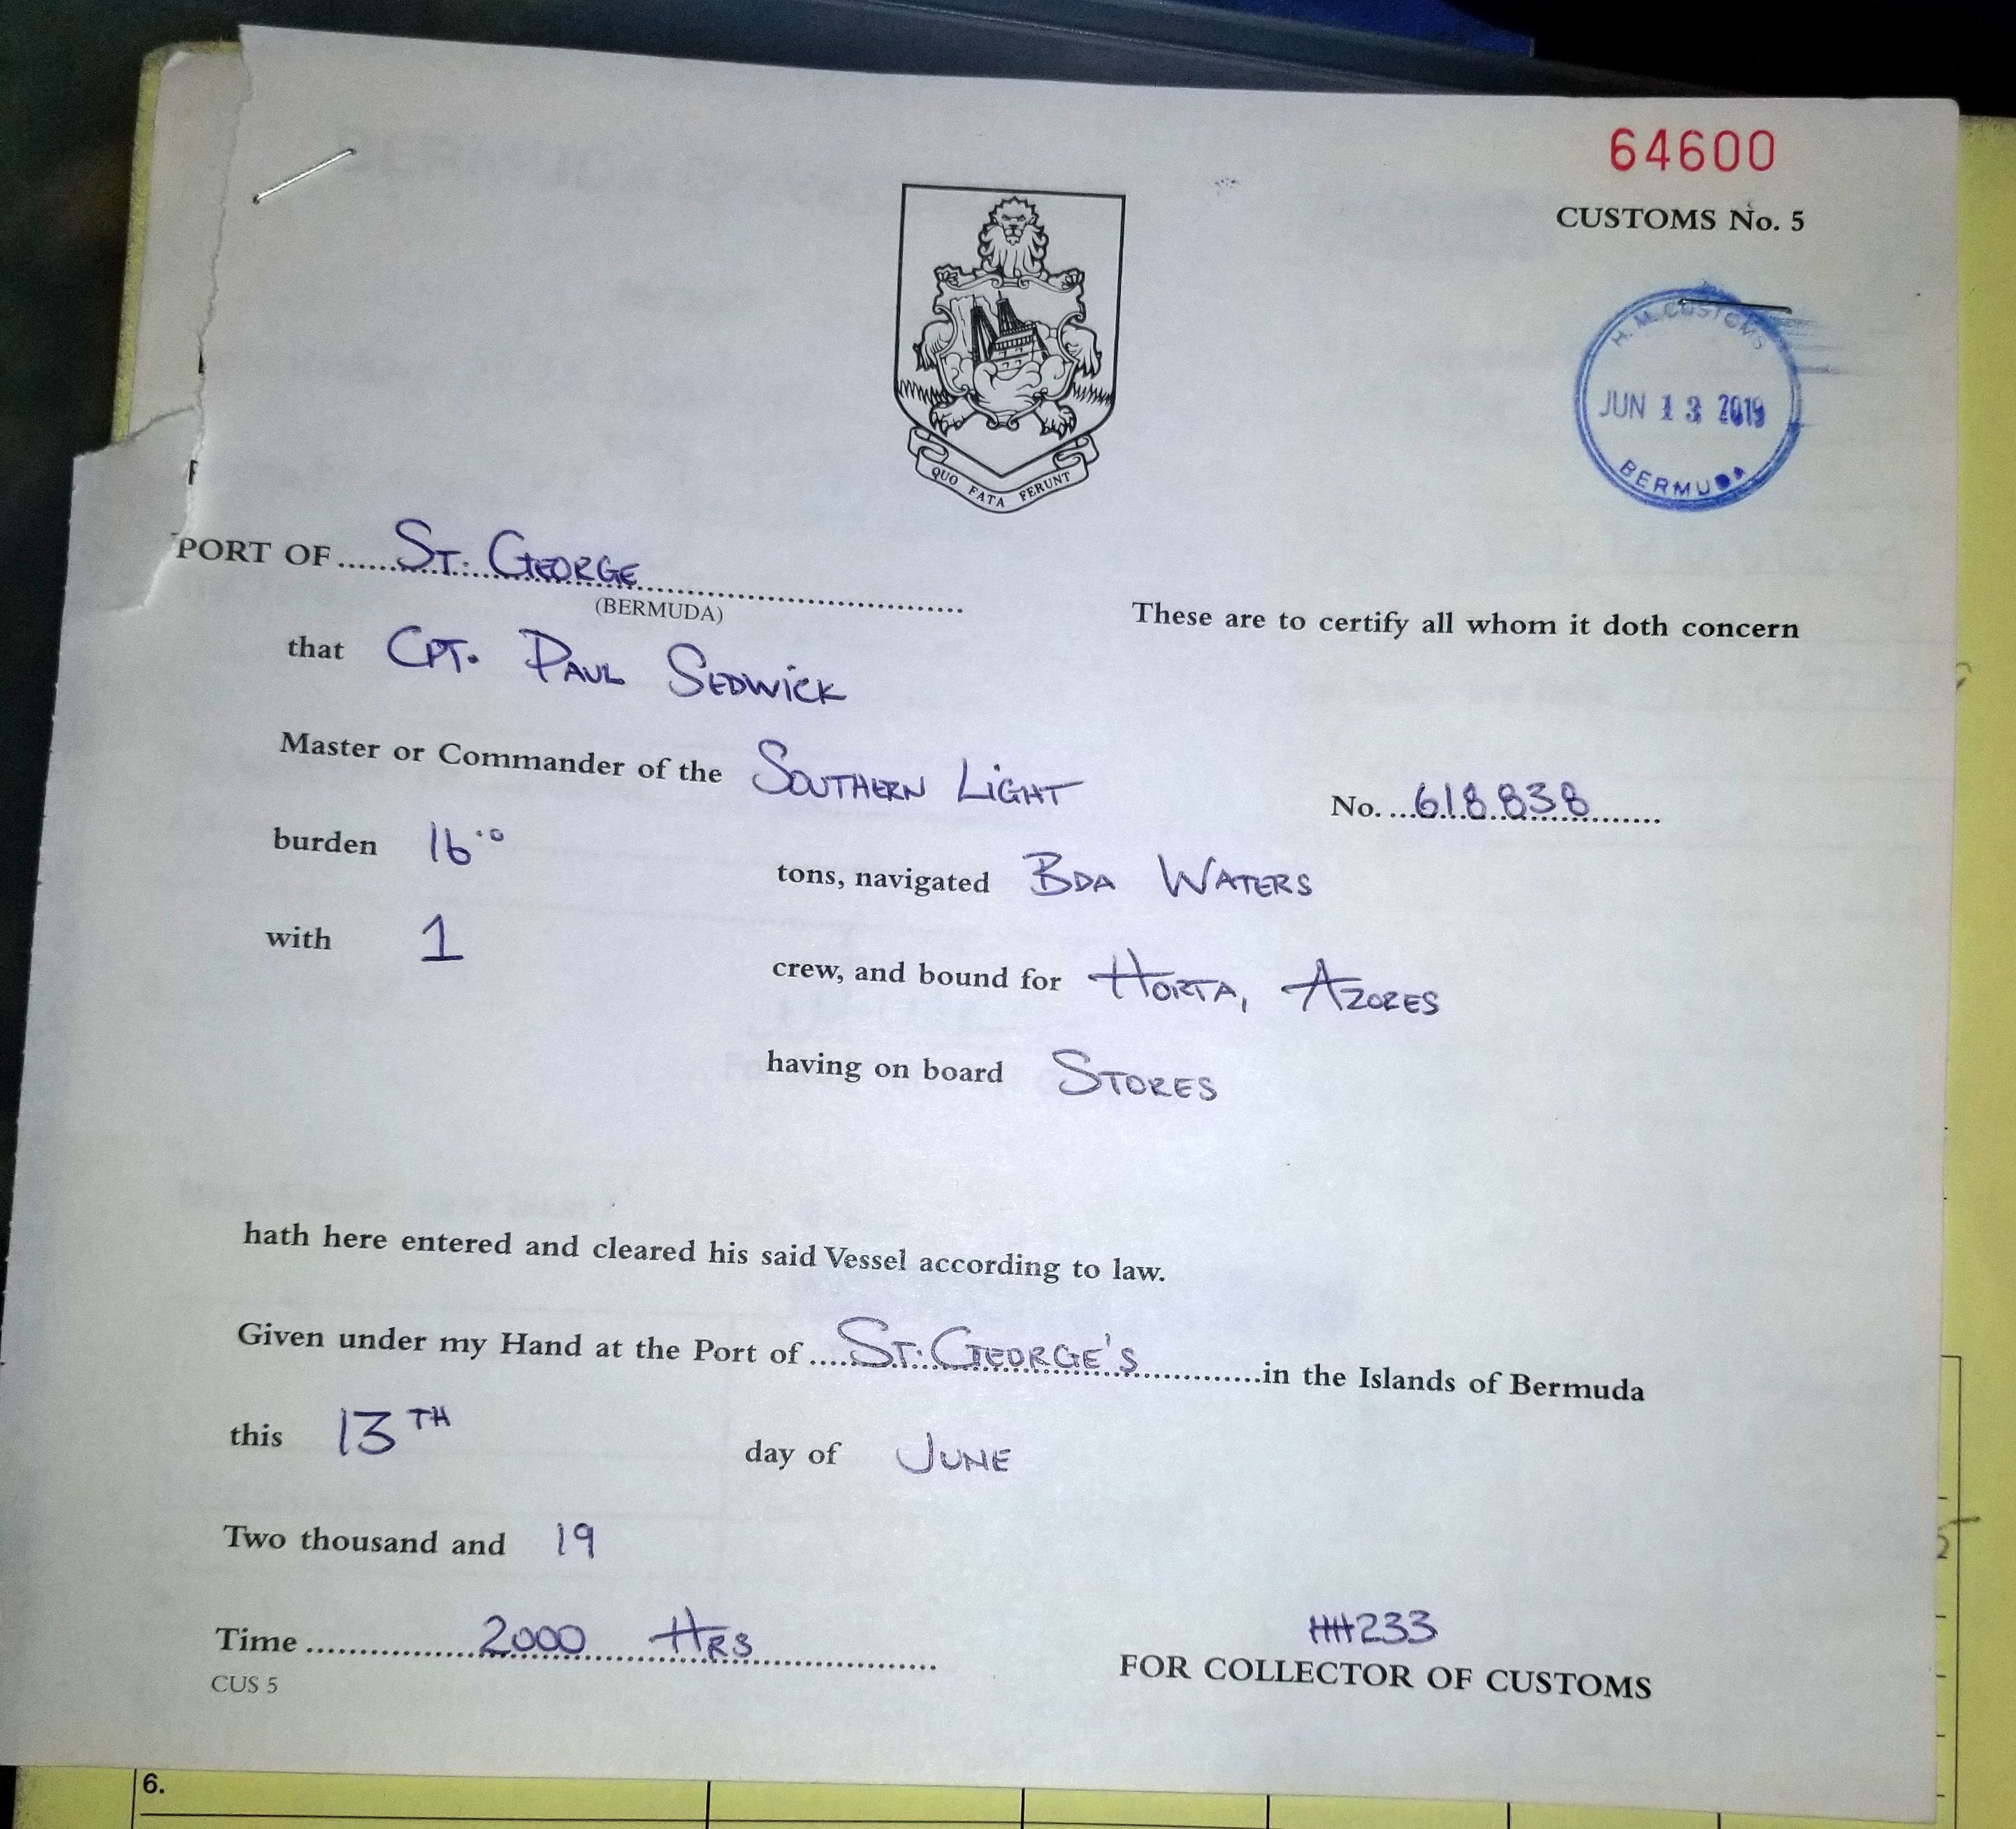 64600
CUSTOMS No. 5
H. M. CUSTOMS
JUN 13 2019
BERMUDA
QUO FATA FERUNT
PORT OF......ST. GEORGE......
(BERMUDA)
These are to certify all whom it doth concern
that CPT. PAUL SEDWICK
Master or Commander of the SOUTHERN LIGHT No. ...618838......
burden 16.0 tons, navigated BDA WATERS
with 1 crew, and bound for HORTA, AZORES
having on board STORES
hath here entered and cleared his said Vessel according to law.
Given under my Hand at the Port of .....ST. GEORGE'S............in the Islands of Bermuda
this 13TH day of JUNE
Two thousand and 19
Time ................2000 HRS................
233
FOR COLLECTOR OF CUSTOMS
CUS 5
6.